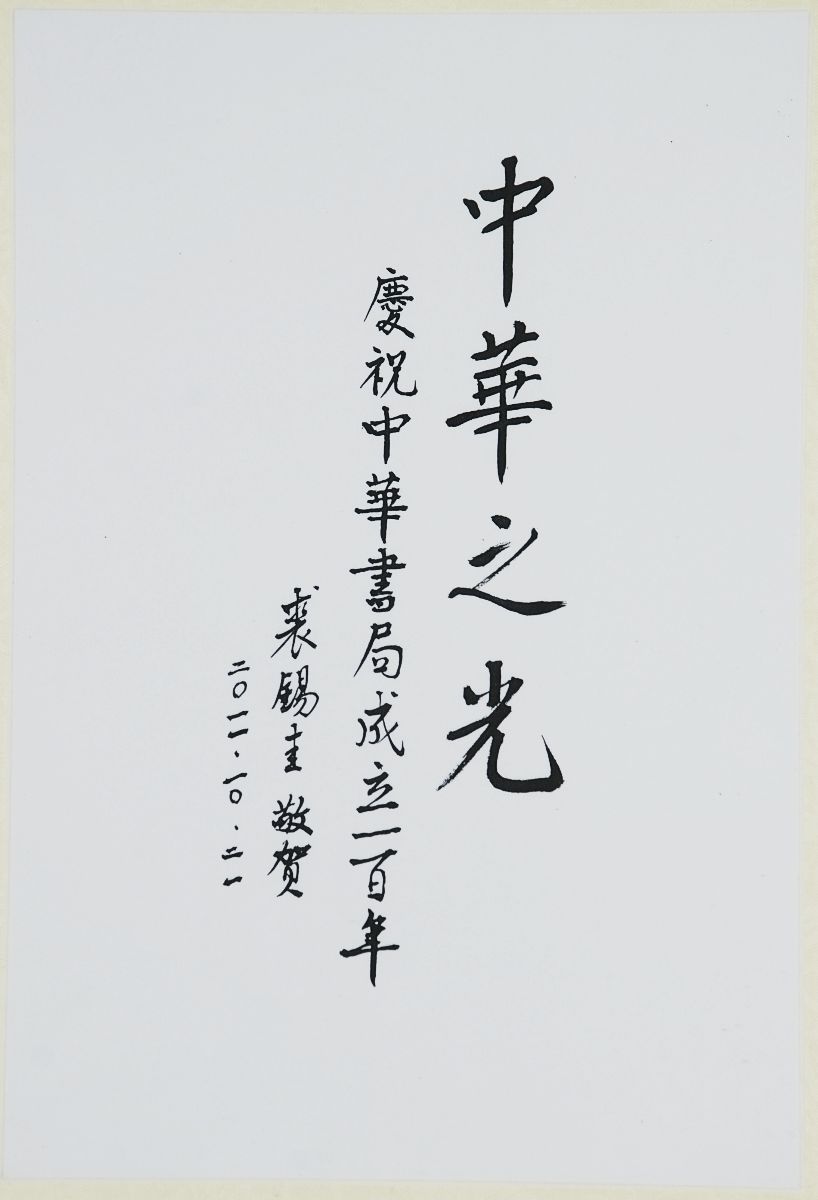 中華之光
慶祝中華書局成立一百年
裘錫圭敬贺
二〇一一.一〇.二一